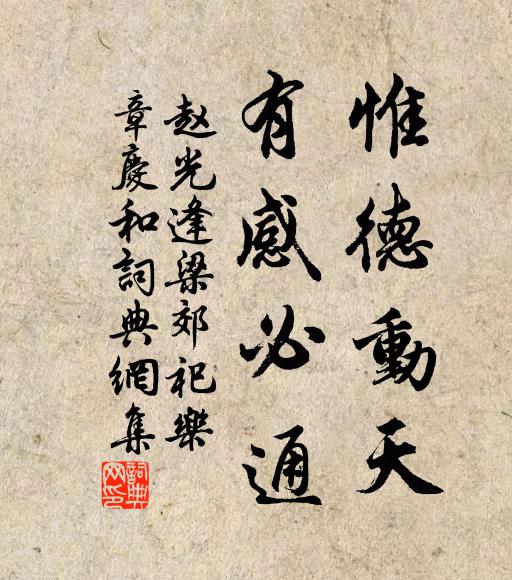 惟德動天
有感必通
赵光逢梁郊祀樂
章慶和詞典網集
詞典
网印